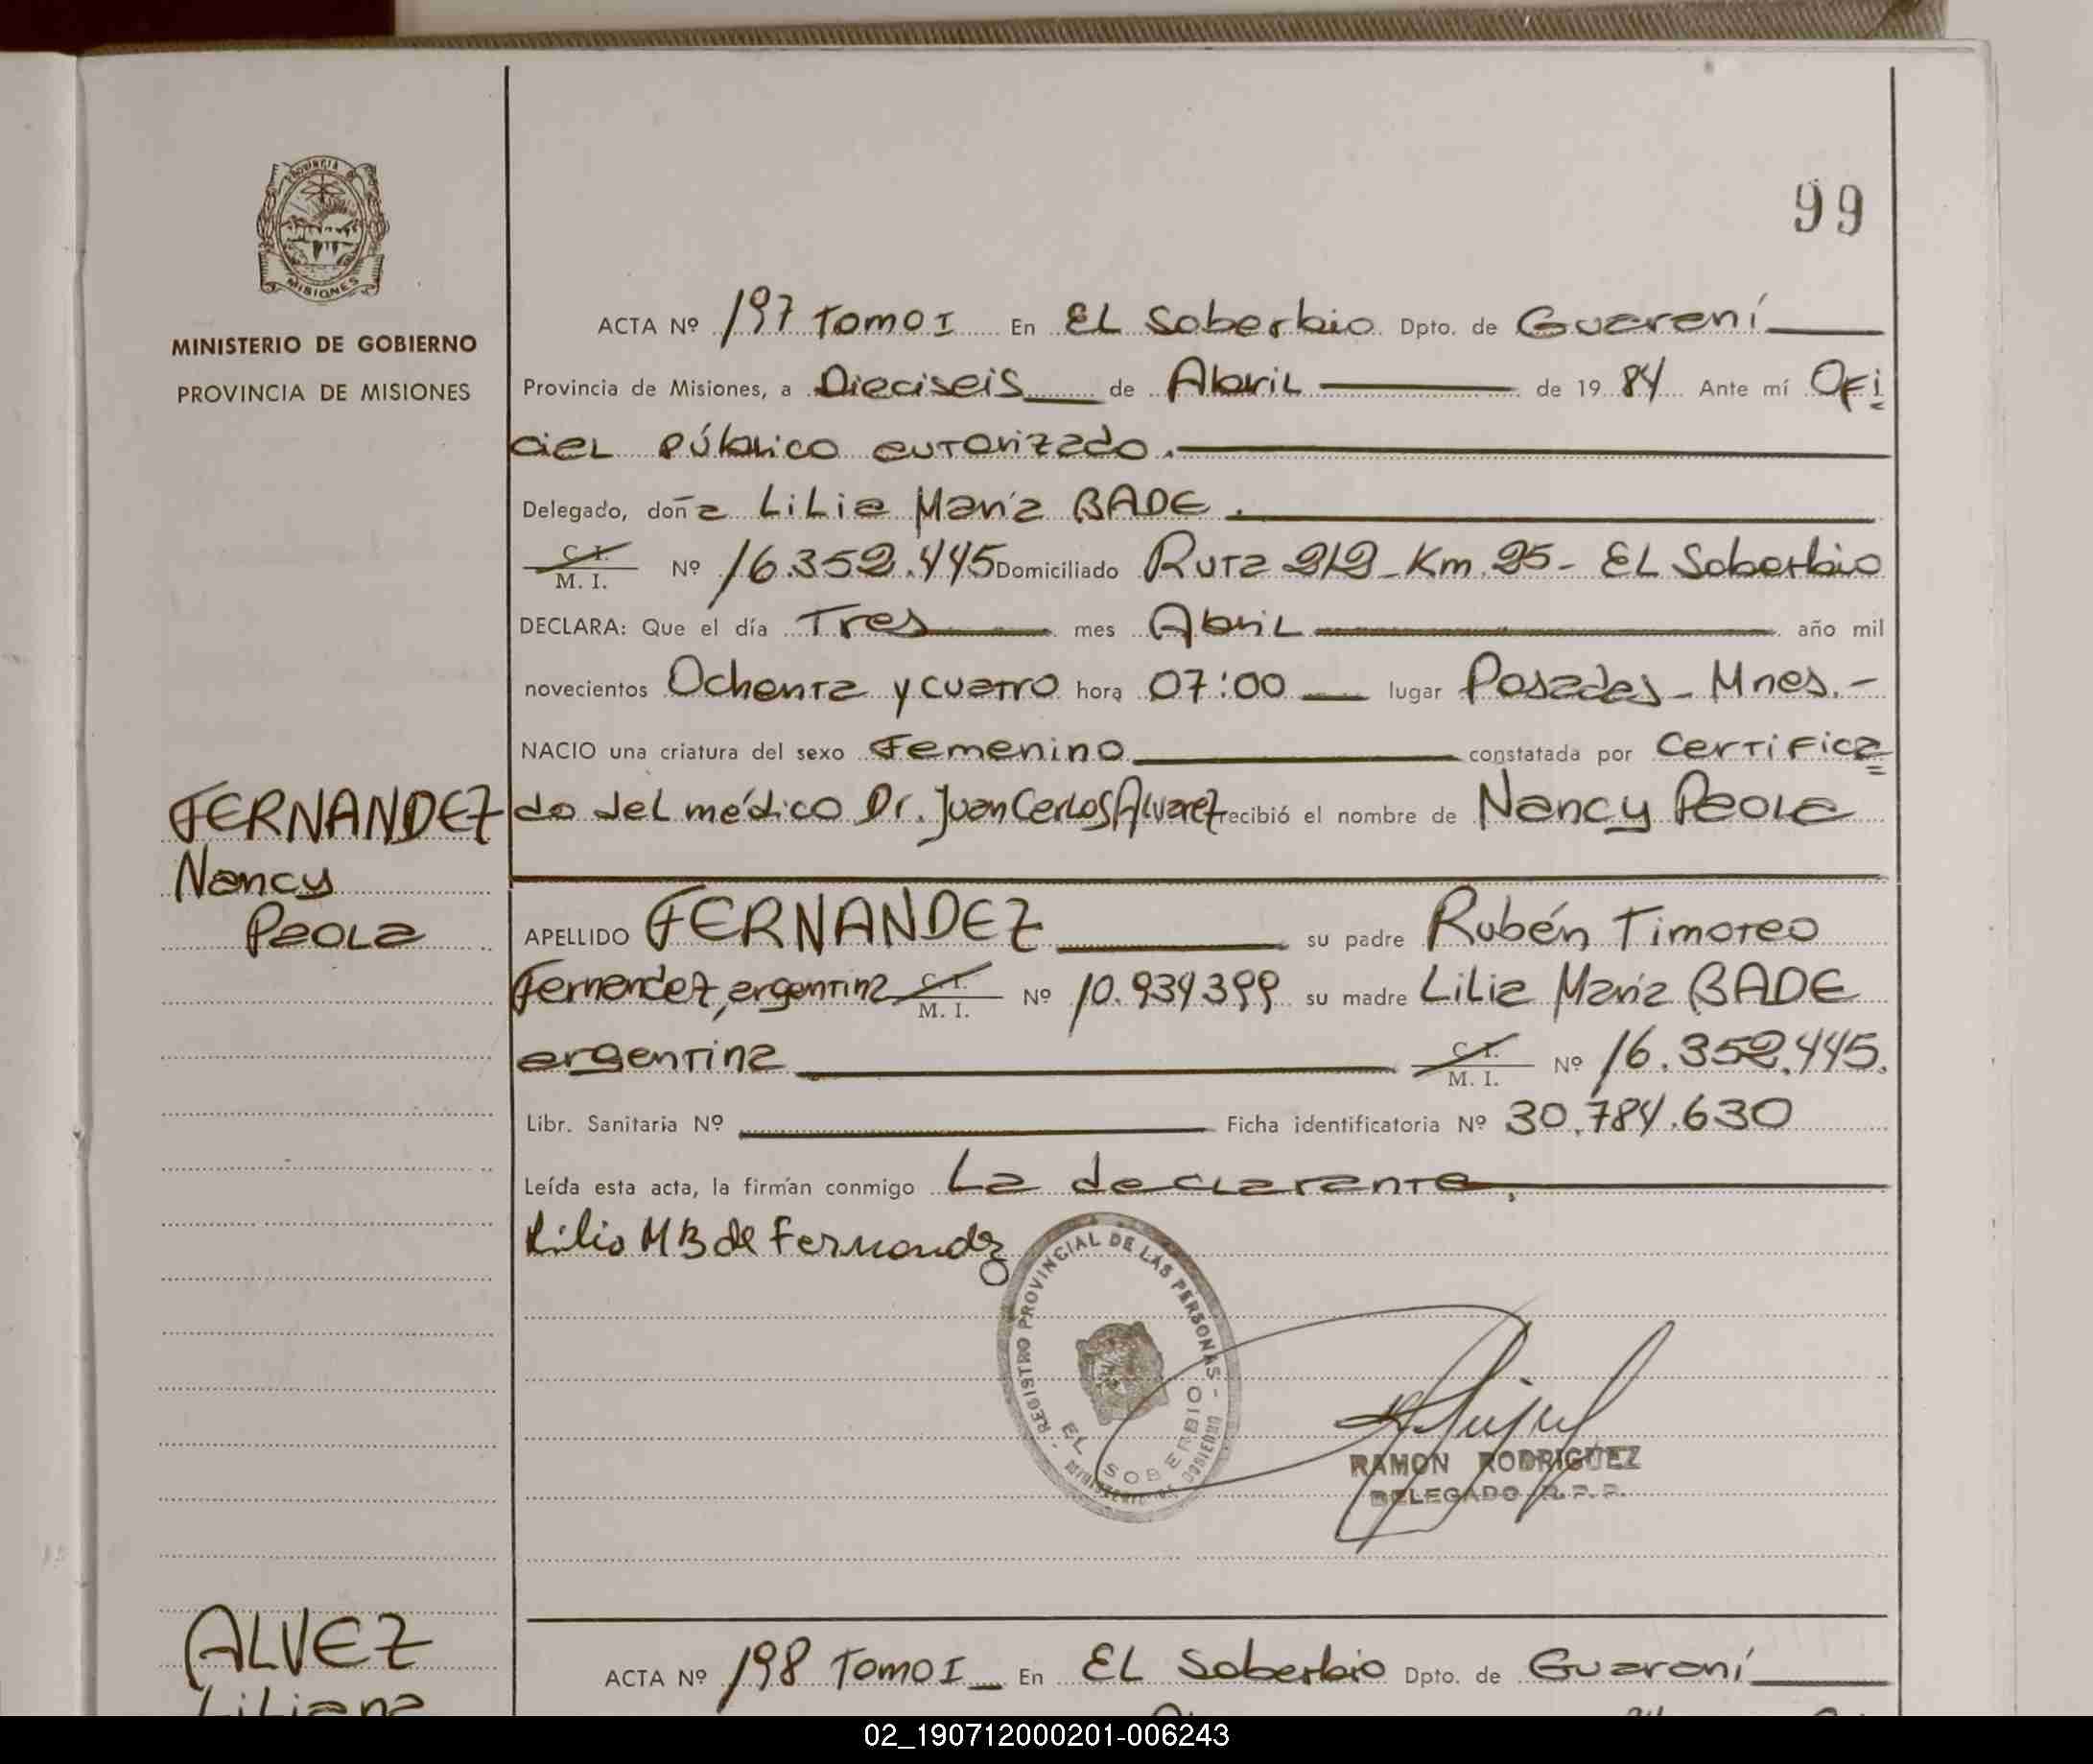 PROVINCIA
MISIONES
MINISTERIO DE GOBIERNO
PROVINCIA DE MISIONES
99
ACTA Nº 197 Tomo I En EL Soberbio Dpto. de Guaraní
Provincia de Misiones, a Dieciseis de Abril de 1984 Ante mí Ofi
cial público autorizado.
Delegado, doña Lilia María BADE.
C. I.
M. I. Nº 16.352.445 Domiciliado Ruta 212 - Km. 25 - EL Soberbio
DECLARA: Que el día Tres mes Abril año mil
novecientos Ochenta y cuatro hora 07:00 lugar Posadas - Mnes. -
NACIO una criatura del sexo Femenino constatada por Certifica
do del médico Dr. Juan Carlos Alvarez recibió el nombre de Nancy Paola
FERNANDEZ
Nancy
Paola
APELLIDO FERNANDEZ su padre Rubén Timoteo
Fernandez, argentina C. I.
M. I. Nº 10.934399 su madre Lilia María BADE
argentina C. I.
M. I. Nº 16.352.445.
Libr. Sanitaria Nº Ficha identificatoria Nº 30.784.630
Leída esta acta, la firman conmigo La declarante.
Lilia M B de Fernandez
REGISTRO PROVINCIAL DE LAS PERSONAS - MINISTERIO DE GOBIERNO -
EL SOBERBIO
RAMON RODRIGUEZ
DELEGADO R. P. P.
ALVEZ
Liliana
ACTA Nº 198 Tomo I En EL Soberbio Dpto. de Guaraní
02_190712000201-006243